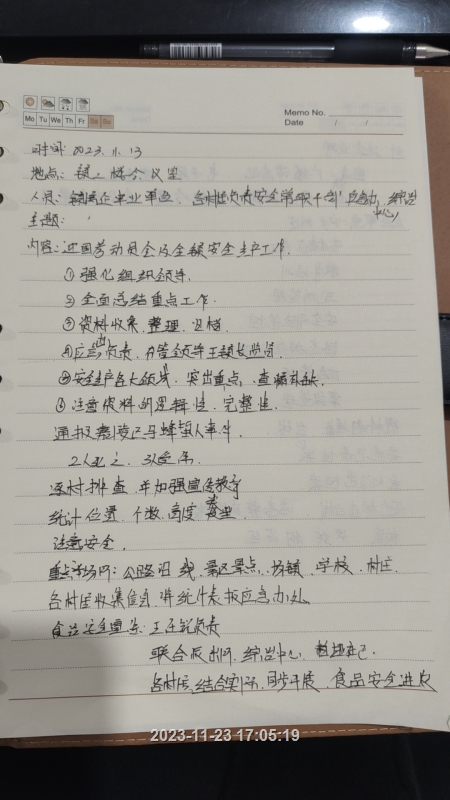 Mo Tu We Th Fr Sa Su
Memo No.
Date / /
时间: 2023.11.13
地点: 镇二楼会议室
人员: 镇属企事业单位、各村居负责安全常职干部、应急办、综治
中心
主题:
内容: 迎国务动员会及全镇安全生产工作.
①强化组织领导.
②全面总结重点工作.
③资料收集、整理、归档.
④应急办负责, 分管领导王镇长监督.
⑤安全生产各大领域, 突出重点, 查漏补缺.
⑥注意资料的逻辑性、完整性.
通报 马蜂蜇人事件.
2人死亡, 3人受伤.
逐村排查, 并加强宣传教育
统计位置、个数、高度、类型.
注意安全.
重点场所: 公路沿线、景区景点、场镇、学校、村庄.
各村居收集信息, 将统计表报应急办处
食品安全 : 王 负责
联合派出所、综治中心、
各村居结合实际, 同步开展, 食品安全进农
2023-11-23 17:05:19